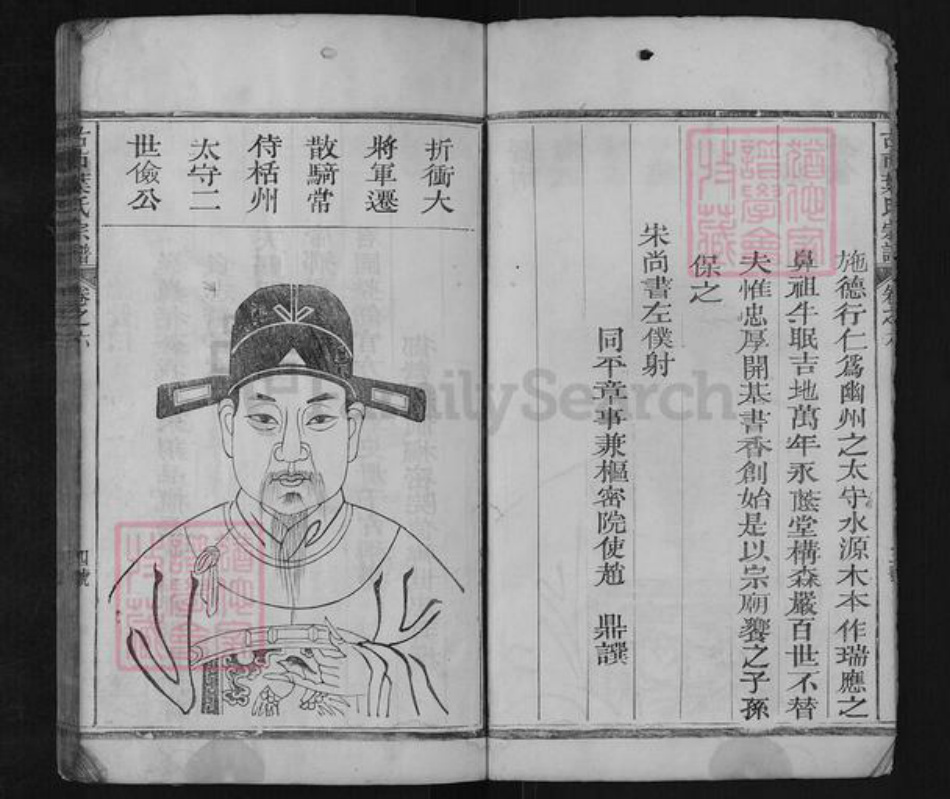 施德行仁爲幽州之太守水源木本作瑞應之
鼻祖牛眠吉地萬年永蔭堂構森嚴百世不替
夫惟忠厚開基書香創始是以宗廟饗之子孫
保之
宋尚書左僕射
同平章事兼樞密院使趙 鼎譔
折衝大
將軍遷
散騎常
侍栝州
太守二
世儉公
氏宗譜
卷之六
四號
FamilySearch